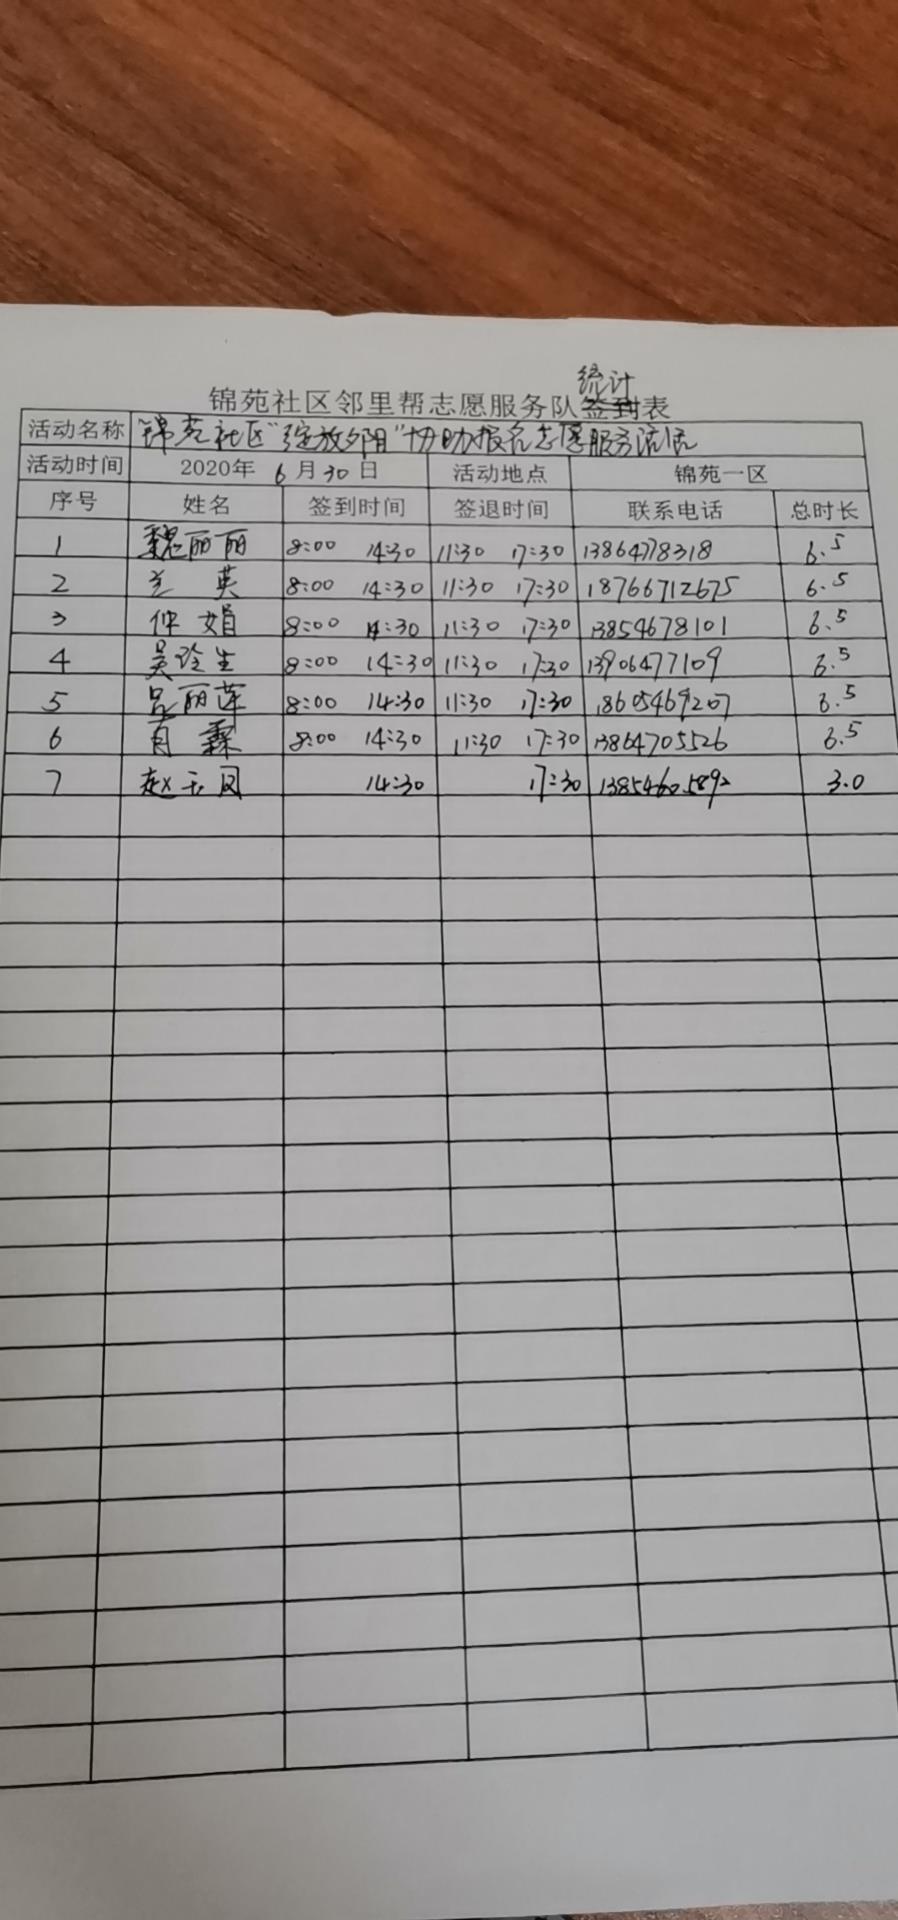 统计
锦苑社区邻里帮志愿服务队签到表
活动名称 锦苑社区“绽放夕阳”协助报名志愿服务活动
活动时间 2020年 6月30日 活动地点 锦苑一区
序号 姓名 签到时间 签退时间 联系电话 总时长
1 魏丽丽 8:00 14:30 11:30 17:30 13864778318 6.5
2 兰英 8:00 14:30 11:30 17:30 18766712675 6.5
3 仲娟 8:00 14:30 11:30 17:30 13854678101 6.5
4 吴玲生 8:00 14:30 11:30 17:30 13906477109 6.5
5 吕丽莲 8:00 14:30 11:30 17:30 18605469207 6.5
6 肖霖 8:00 14:30 11:30 17:30 13864705526 6.5
7 赵玉凤 14:30 17:30 13854605892 3.0